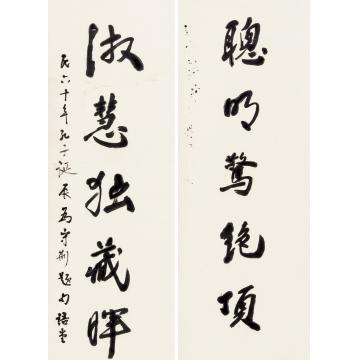 聰明驚絕頂
淑慧獨藏暉
民六十年孔子誕辰為守荊題句語堂